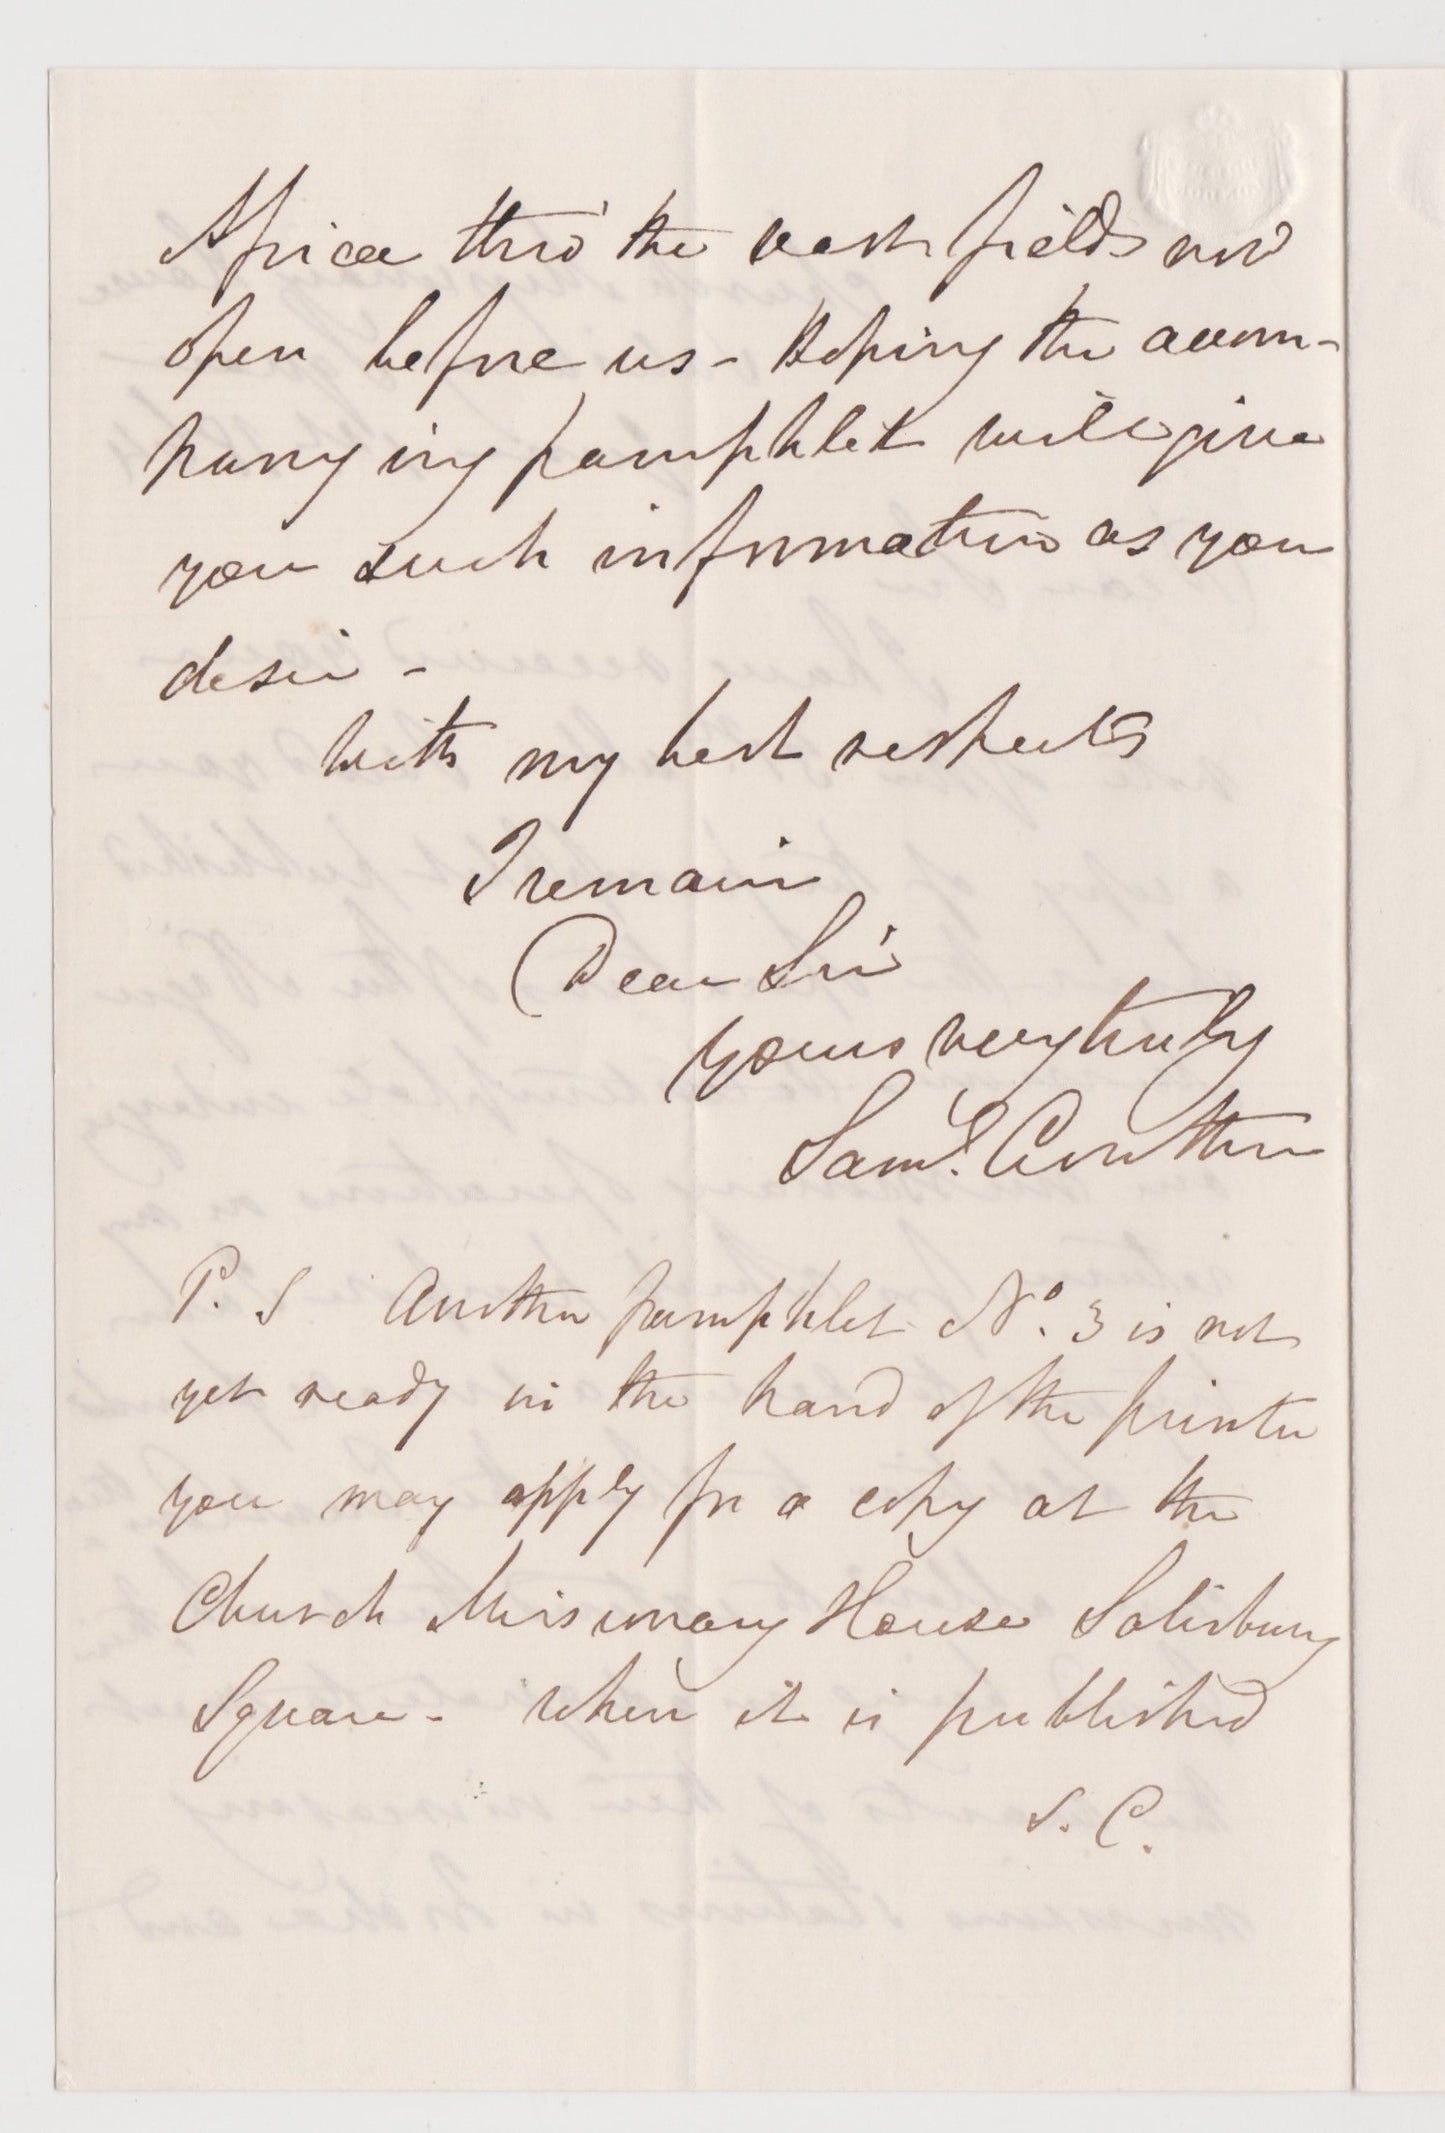 Africa thro' the vast fields now
open before us - Hoping the accom-
panying pamphlet will give
you such information as you
desire -
With my best respects
I remain
Dear Sir
yours very truly
Saml. Crowther
P. S Another pamphlet No. 3 is not
yet ready in the hand of the printer
you may apply for a copy at the
Church Missionary House Salisbury
Square - when it is published
S. C.